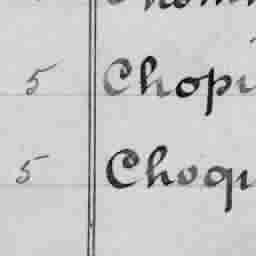 5 Chopi
5 Choqu